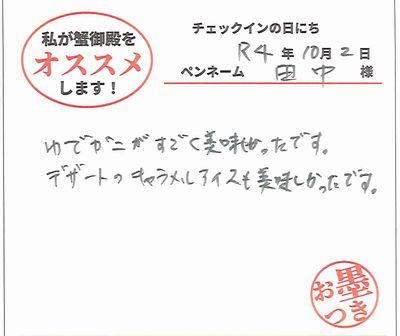 私が蟹御殿を
オススメ
します！
チェックインの日にち
R4年10月2日
ペンネーム 田中 様
ゆでガニがすごく美味しかったです。
デザートのキャラメルアイスも美味しかったです。
お墨つき